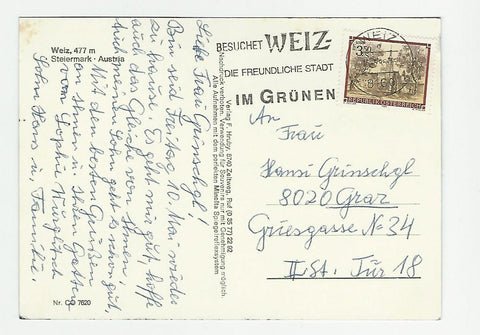 Weiz, 477 m
Steiermark · Austria
Liebe Frau Grinschgl!
Bin seid Freitag 10. Mai wieder
zu hause. Es geht mir gut, hoffe
auch das Gleiche von Ihnen,
bei meinem Sohn geht es schon gut,
Mit den besten Grüßen
an Ihnen u. Ihren Gatten
von Sophie
Sohn Hans u. Familie.
Nr. CO 7620
Verlag F. Hruby, 8740 Zeltweg, Ruf (0 35 77) 22 92
Nachdruck verboten. Verwendung für Souvenirs nur mit Genehmigung möglich.
Alle Aufnahmen mit dem perfekten Minolta Spiegelreflexsystem
BESUCHET WEIZ
DIE FREUNDLICHE STADT
IM GRÜNEN
WEIZ
REPUBLIK ÖSTERREICH
An
Frau
Hansi Grinschgl
8020 Graz
Griesgasse No 34
II. St. Tür 18